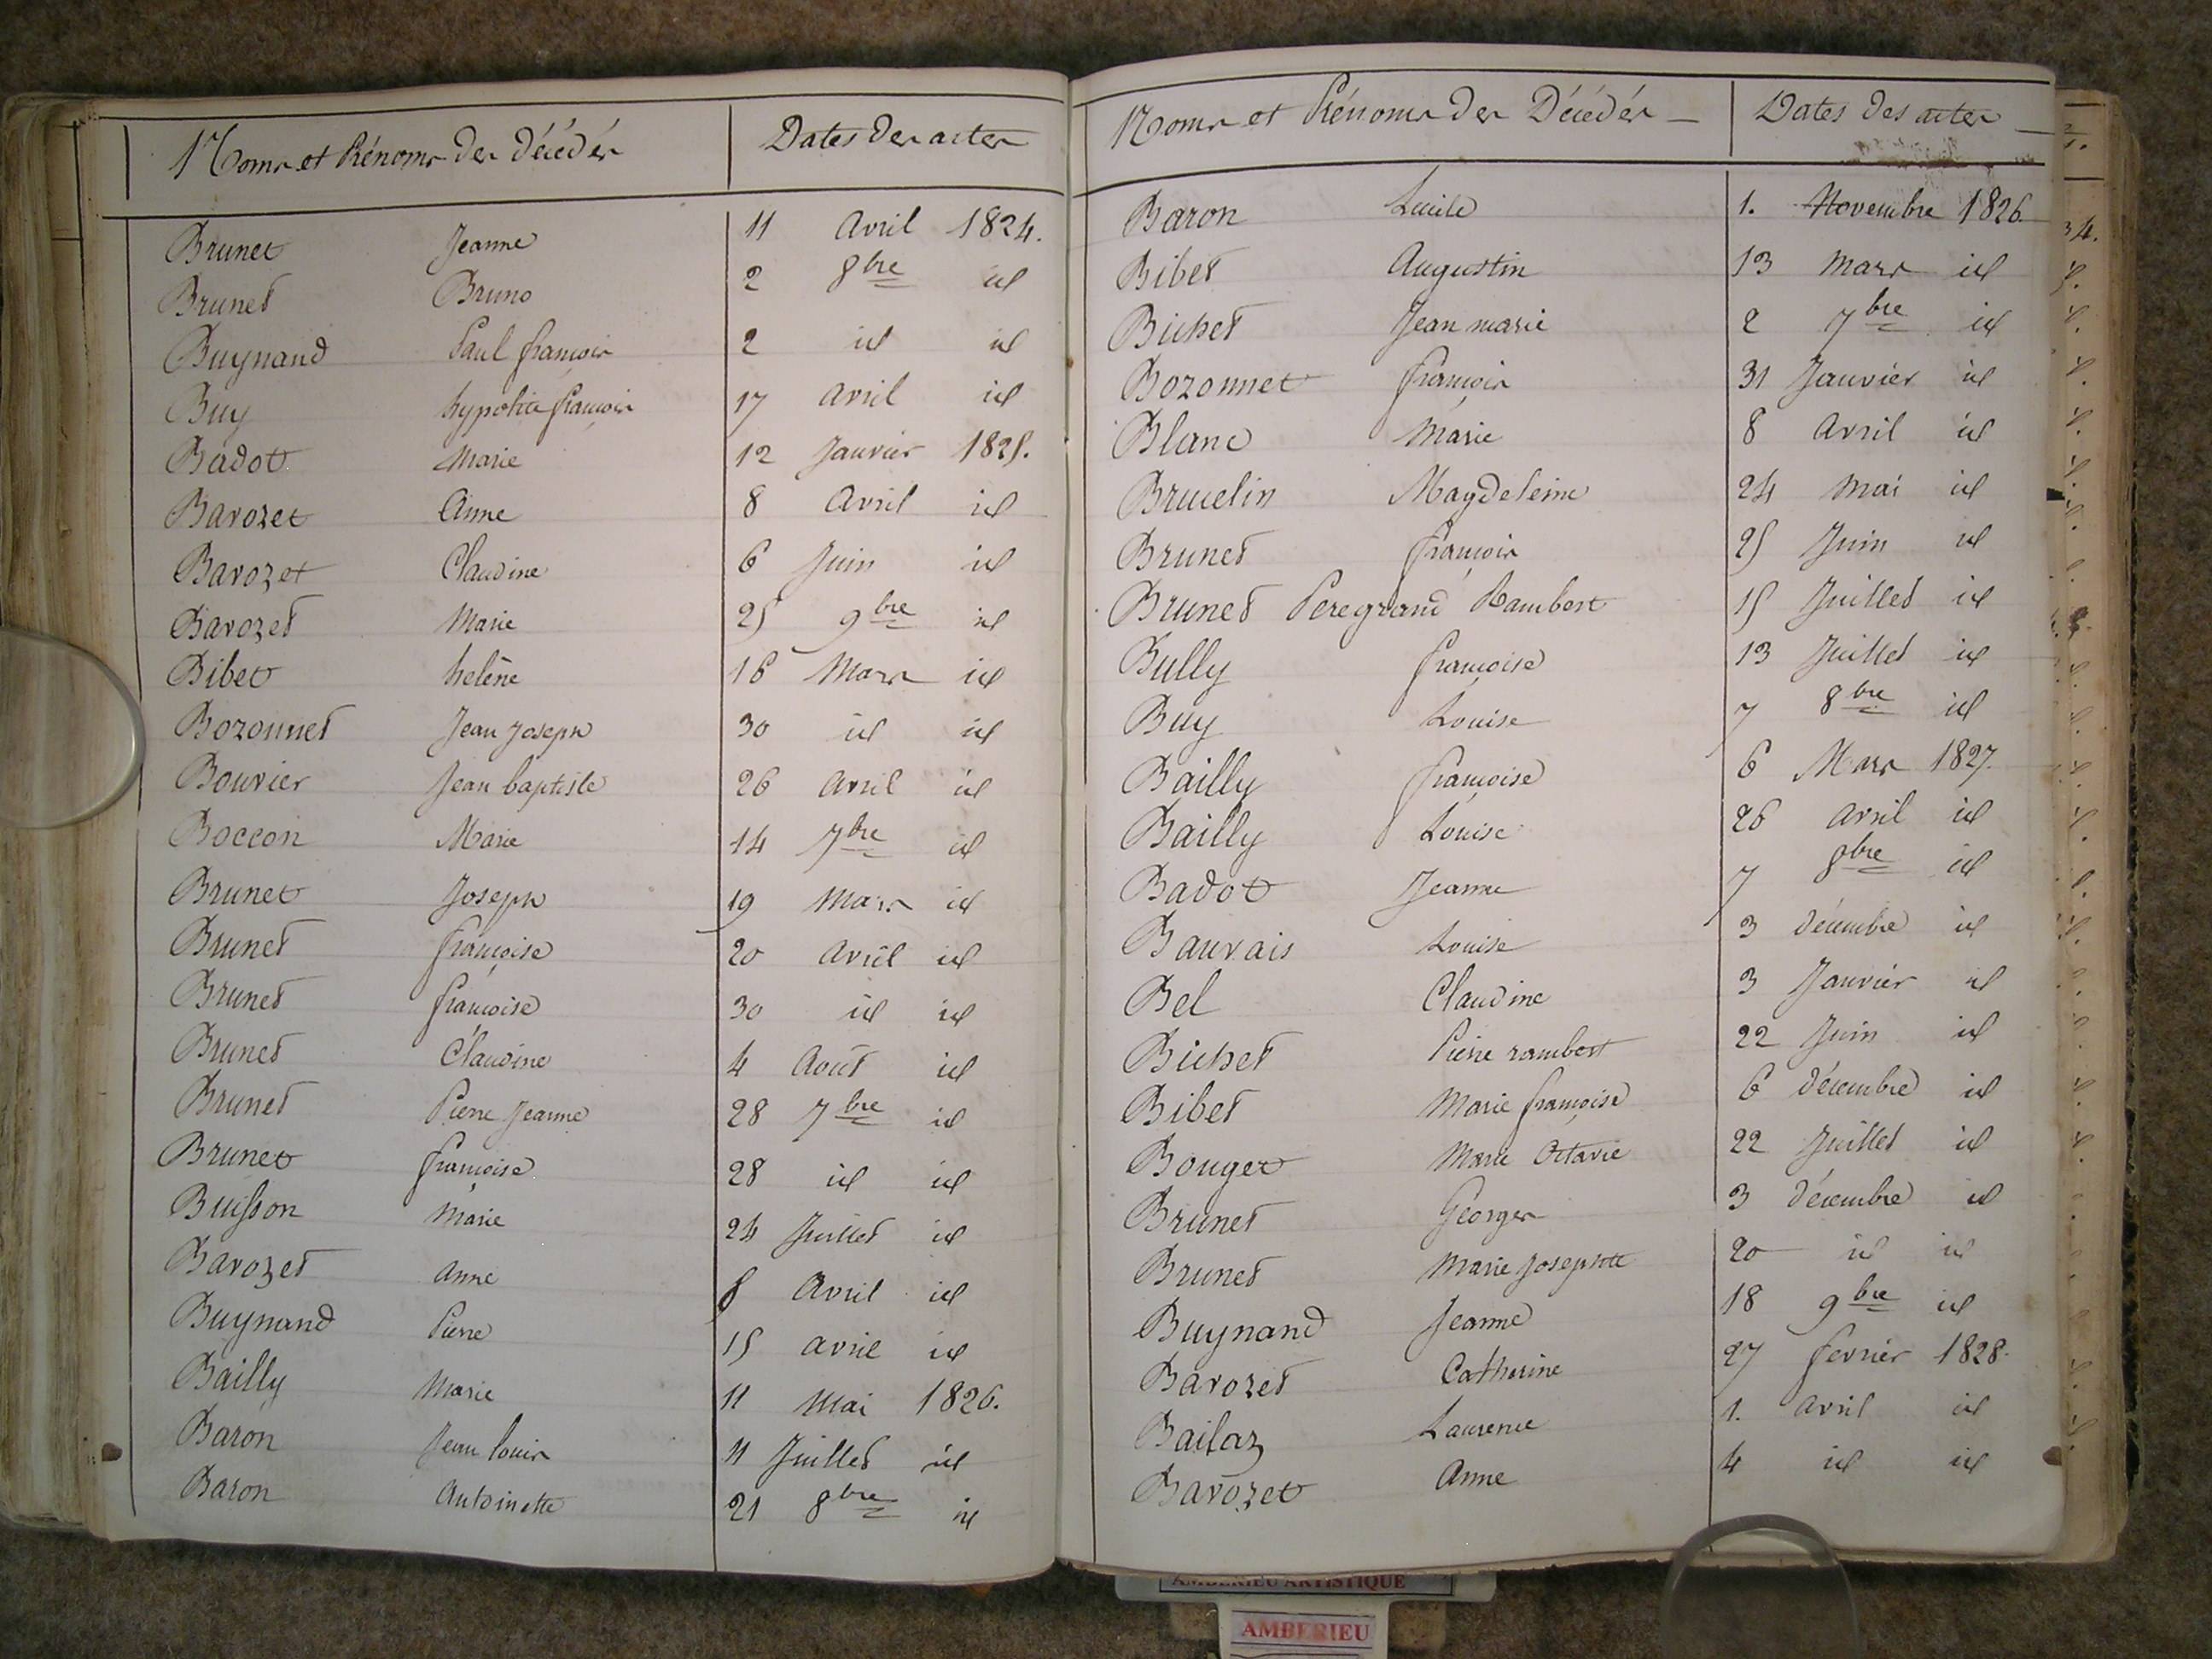 Noms et Prénoms des Décédés Dates des actes
Brunet Jeanne 11 Avril 1824.
Brunet Bruno 2 8bre id
Buynand Paul françois 2 id id
Buy hypolite françois 17 avril id
Badot Marie 12 Janvier 1825.
Barozet Anne 8 Avril id
Barozet Claudine 6 Juin id
Barozet Marie 25 9bre id
Bibet helène 16 Mars id
Bozonnet Jean Joseph 30 id id
Bouvier Jean baptiste 26 avril id
Boccon Marie 14 7bre id
Brunet Joseph 19 Mars id
Brunet françoise 20 avril id
Brunet françoise 30 id id
Brunet Claudine 4 Août id
Brunet Pierre Jeanne 28 7bre id
Brunet françoise 28 id id
Buisson Marie 24 Juillet id
Barozet Anne 8 Avril id
Buynand Pierre 15 avril id
Bailly Marie 11 Mai 1826.
Baron Jean louis 11 Juillet id
Baron Antoinette 21 8bre id
Noms et Prénoms des Décédés Dates des actes
Baron Lucile 1. Novembre 1826
Bibet Augustin 13 Mars id
Bichet Jean marie 2 7bre id
Bozonnet françois 31 Janvier id
Blanc Marie 8 Avril id
Brucelin Magdeleine 24 Mai id
Brunet françois 25 Juin id
Brunet Peregrand Rambert 15 Juillet id
Bully françoise 13 Juillet id
Buy Louise 7 8bre id
Bailly françoise 6 Mars 1827.
Bailly Louise 26 avril id
Badot Jeanne 7 8bre id
Bauvais Louise 3 décembre id
Bel Claudine 3 Janvier id
Bichet Pierre rambert 22 Juin id
Bibet Marie françoise 6 décembre id
Bouget Marie Octavie 22 Juillet id
Brunet Georges 3 décembre id
Brunet Marie Josephte 20 id id
Buynand Jeanne 18 9bre id
Barozet Catherine 27 fevrier 1828.
Bailaz Laurence 1. avril id
Barozet Anne 4 id id
AMBERIEU ARTISTIQUE
AMBERIEU